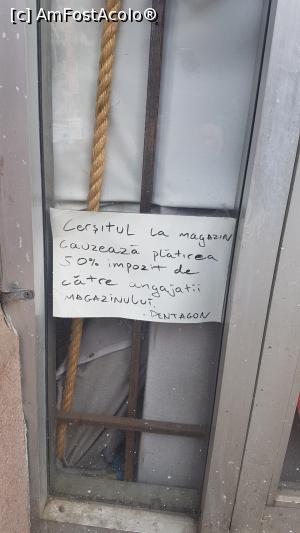 [c] AmFostAcolo®
Cerșitul la magazin
cauzează plătirea
50% impozit de
către angajatii
magazinului.
- Pentagon